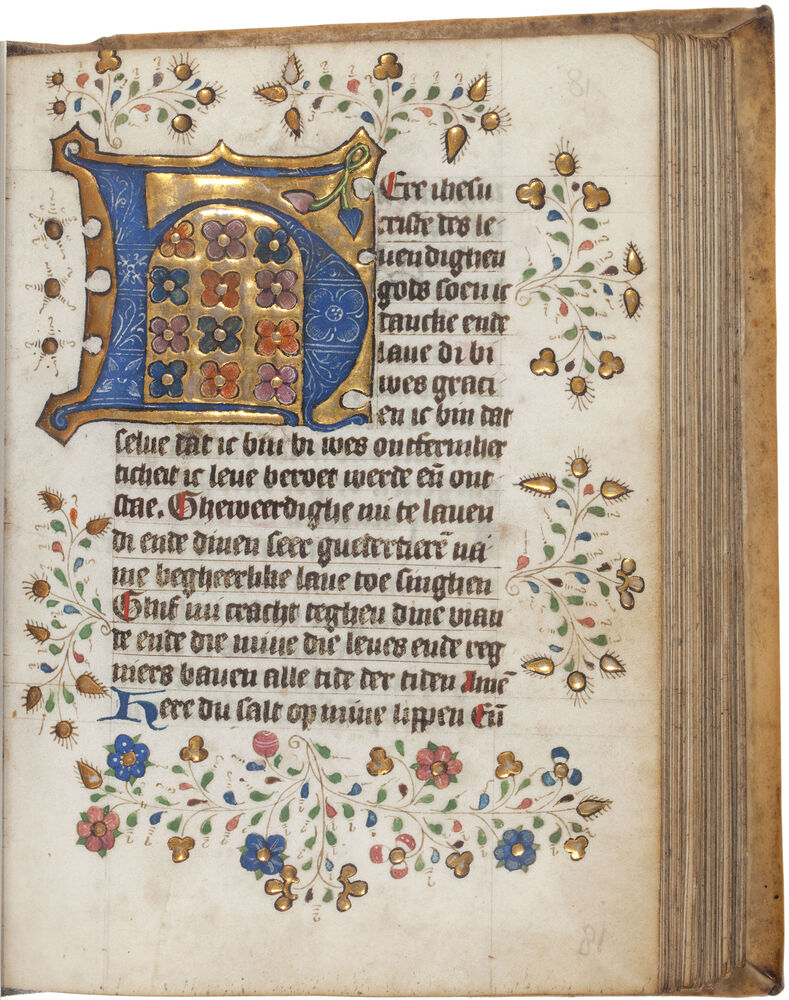 HEre ihesu
criste des le
uendighen
gods soen ic
dancke ende
laue di bi
wes graci
en ic bin dat
selue dat ic bin bi wes ontfermher
ticheit ic leue beroet werde eñ ont
stae. Gheweerdighe mi te lauen
di ende dinen seer guedertierē na
me begheerlike laue toe singhen
Ghif mi cracht teghen dine vian
de ende die mine die leues ende reg
niers bauen alle tide der tiden Amē
Here du salt op mine lippen Eñ
81
81